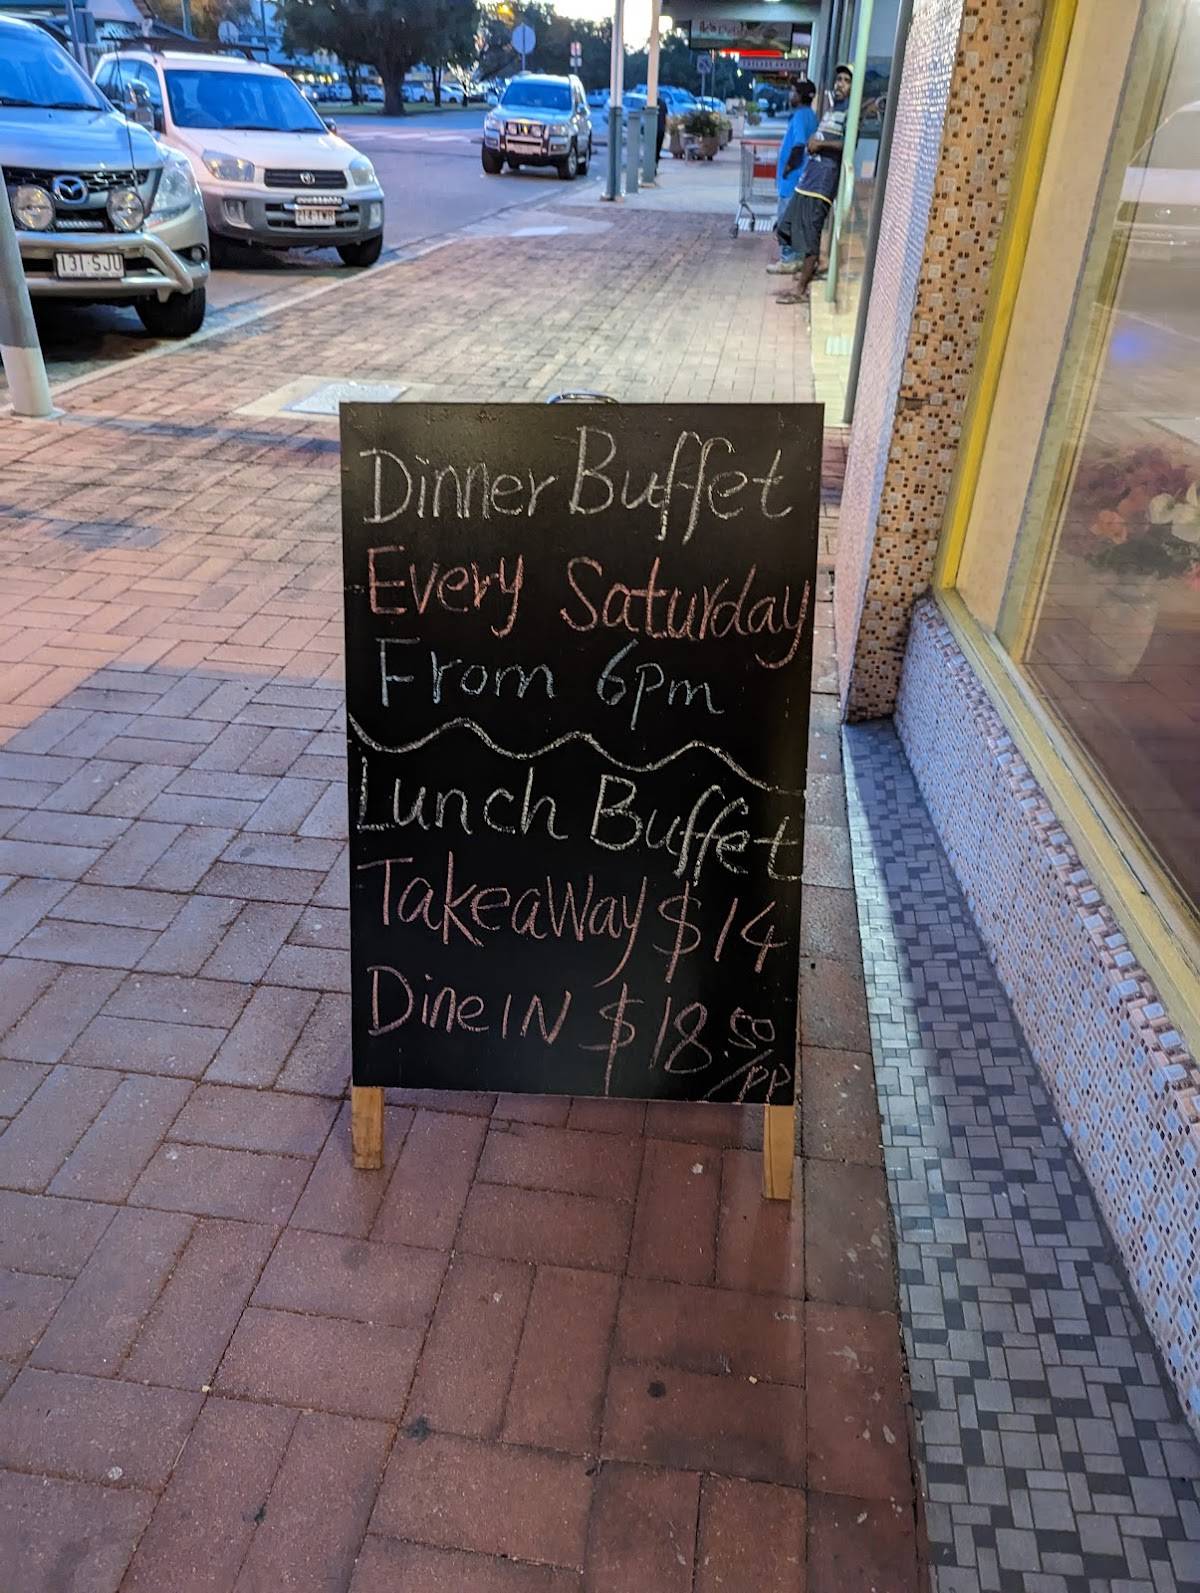 Dinner Buffet
Every Saturday
From 6pm
Lunch Buffet
Takeaway $14
Dine IN $18.50/PP
131·SJU